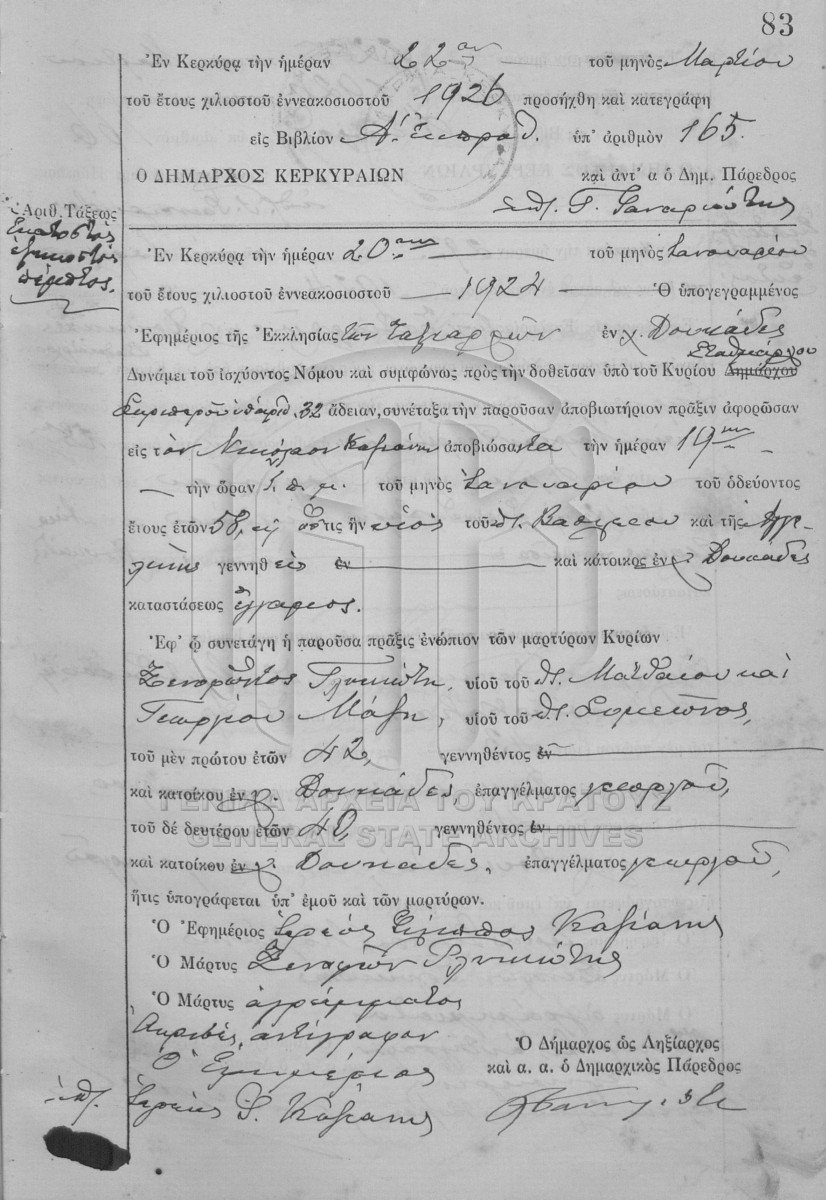 83
Ἐν Κερκύρᾳ τὴν ἡμέραν 22αν τοῦ μηνὸς Μαρτίου
τοῦ ἔτους χιλιοστοῦ ἐννεακοσιοστοῦ 1926 προσήχθη καὶ κατεγράφη
εἰς Βιβλίον Α. ὑπ' ἀριθμὸν 165.
Ο ΔΗΜΑΡΧΟΣ ΚΕΡΚΥΡΑΙΩΝ καὶ ἀντ' α ὁ Δημ. Πάρεδρος
Ἀριθ. Τάξεως
Ἑκατοστὸς
ἑξηκοστὸς
πέμπτος.
Ἐν Κερκύρᾳ τὴν ἡμέραν 20 τοῦ μηνὸς Ιανουαρίου
τοῦ ἔτους χιλιοστοῦ ἐννεακοσιοστοῦ 1924 Ὁ ὑπογεγραμμένος
Ἐφημέριος τῆς Ἐκκλησίας τῶν Ταξιαρχῶν ἐν χ. Δουκάδες
Σταθμάρχου
Δυνάμει τοῦ ἰσχύοντος Νόμου καὶ συμφώνως πρὸς τὴν δοθεῖσαν ὑπὸ τοῦ Κυρίου Δημάρχου
Σκριπεροῦ ὑπ' ἀριθ. 32 ἄδειαν, συνέταξα τὴν παροῦσαν ἀποβιωτήριον πρᾶξιν ἀφορῶσαν
εἰς τὸν Νικόλαον ἀποβιώσαντα τὴν ἡμέραν 19
τὴν ὥραν π. μ. τοῦ μηνὸς Ιανουαρίου τοῦ ὁδεύοντος
ἔτους ἐτῶν 58, ὅστις ἦν υἱὸς τοῦ π. Βασιλείου καὶ τῆς Ἀγγε-
λικῆς γεννηθεὶς ἐν καὶ κάτοικος ἐν χ. Δουκάδες
καταστάσεως ἔγγαμος.
Ἐφ' ᾧ συνετάγη ἡ παροῦσα πρᾶξις ἐνώπιον τῶν μαρτύρων Κυρίων
Γλυκιώτη, υἱοῦ τοῦ π. Ματθαίου καὶ
Γεωργίου Μάζη, υἱοῦ τοῦ π. Συμεῶνος,
τοῦ μὲν πρώτου ἐτῶν 42, γεννηθέντος ἐν
καὶ κατοίκου ἐν χ. Δουκάδες, ἐπαγγέλματος γεωργοῦ,
ΓΕΝΙΚΑ ΑΡΧΕΙΑ ΤΟΥ ΚΡΑΤΟΥΣ
τοῦ δὲ δευτέρου ἐτῶν 40, γεννηθέντος ἐν
GENERAL STATE ARCHIVES
καὶ κατοίκου ἐν χ. Δουκάδες, ἐπαγγέλματος γεωργοῦ,
ἥτις ὑπογράφεται ὑπ' ἐμοῦ καὶ τῶν μαρτύρων.
Ὁ Ἐφημέριος Ἱερεὺς
Ὁ Μάρτυς Ξενοφῶν Γλυκιώτης
Ὁ Μάρτυς ἀγράμματος
Ἀκριβὲς ἀντίγραφον
Ὁ Ἐφημέριος
Ὁ Δήμαρχος ὡς Ληξίαρχος
καὶ α. α. ὁ Δημαρχικὸς Πάρεδρος
Ἱερεὺς